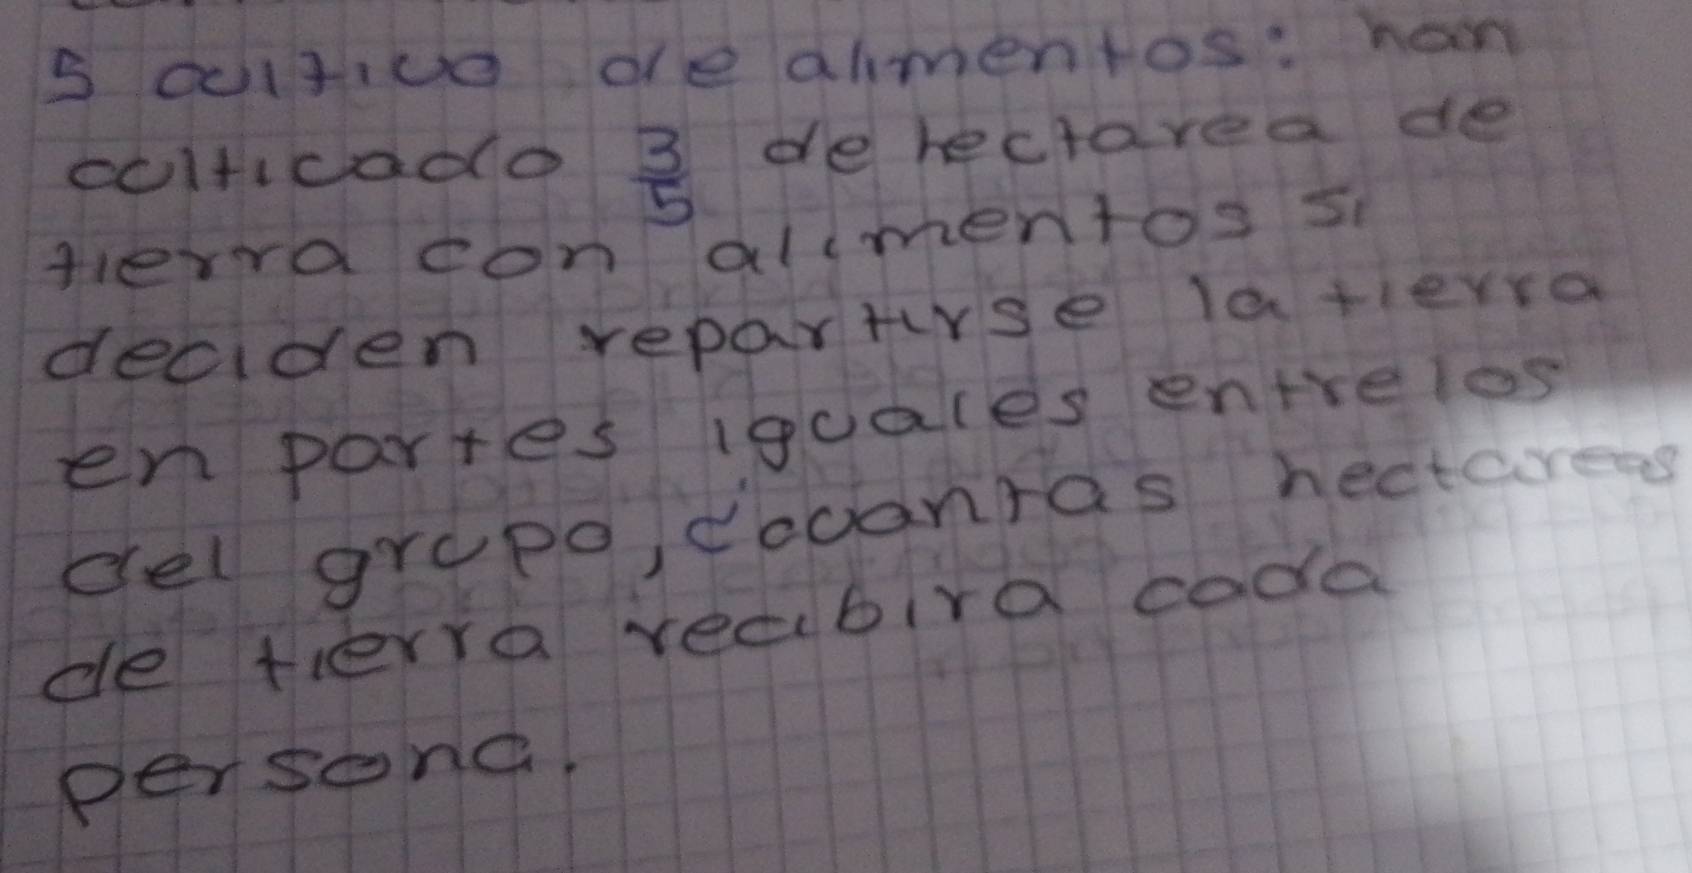 5 cultivo de alimentos: han
culticado 3/5 de hectarea de
tierra con alimentos si
deciden repartirse la tierra
en partes iguales entre los
del grupo, ¿cuantas hectareas
de tierra recibira cada
persona.